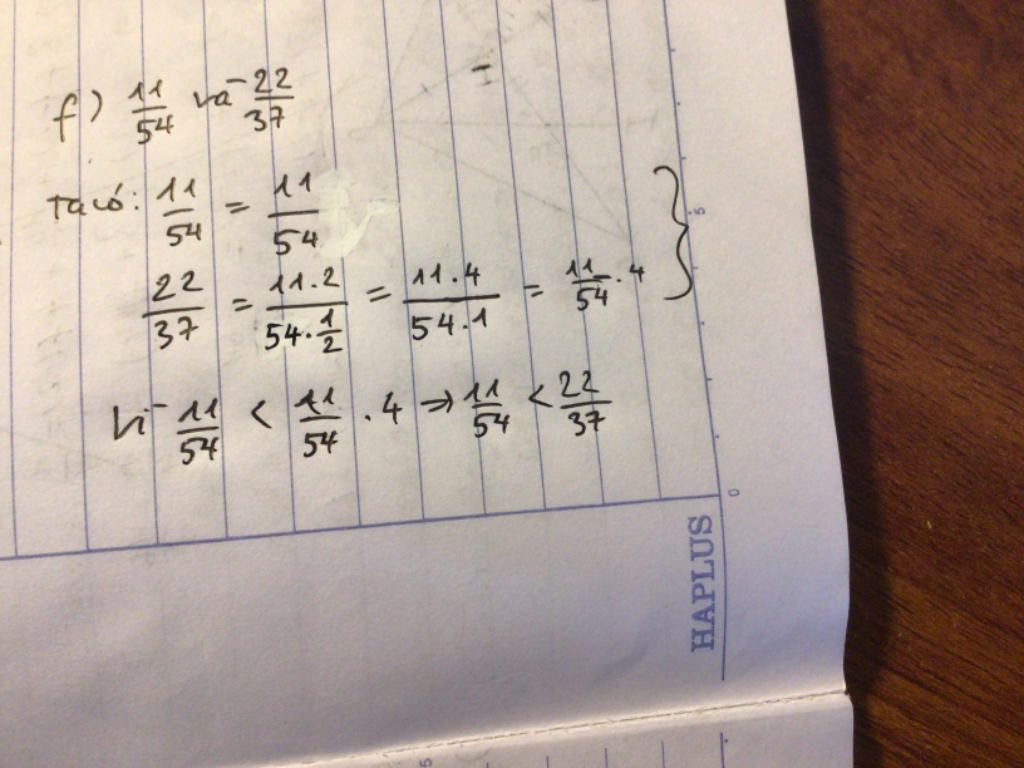 f) 11/54 và 22/37
Ta có: 11/54 = 11/54
22/37 = 11.2/54.1/2 = 11.4/54.1 = 11/54 . 4 }
Vì 11/54 < 11/54 . 4 => 11/54 < 22/37
HAPLUS
0
5
5